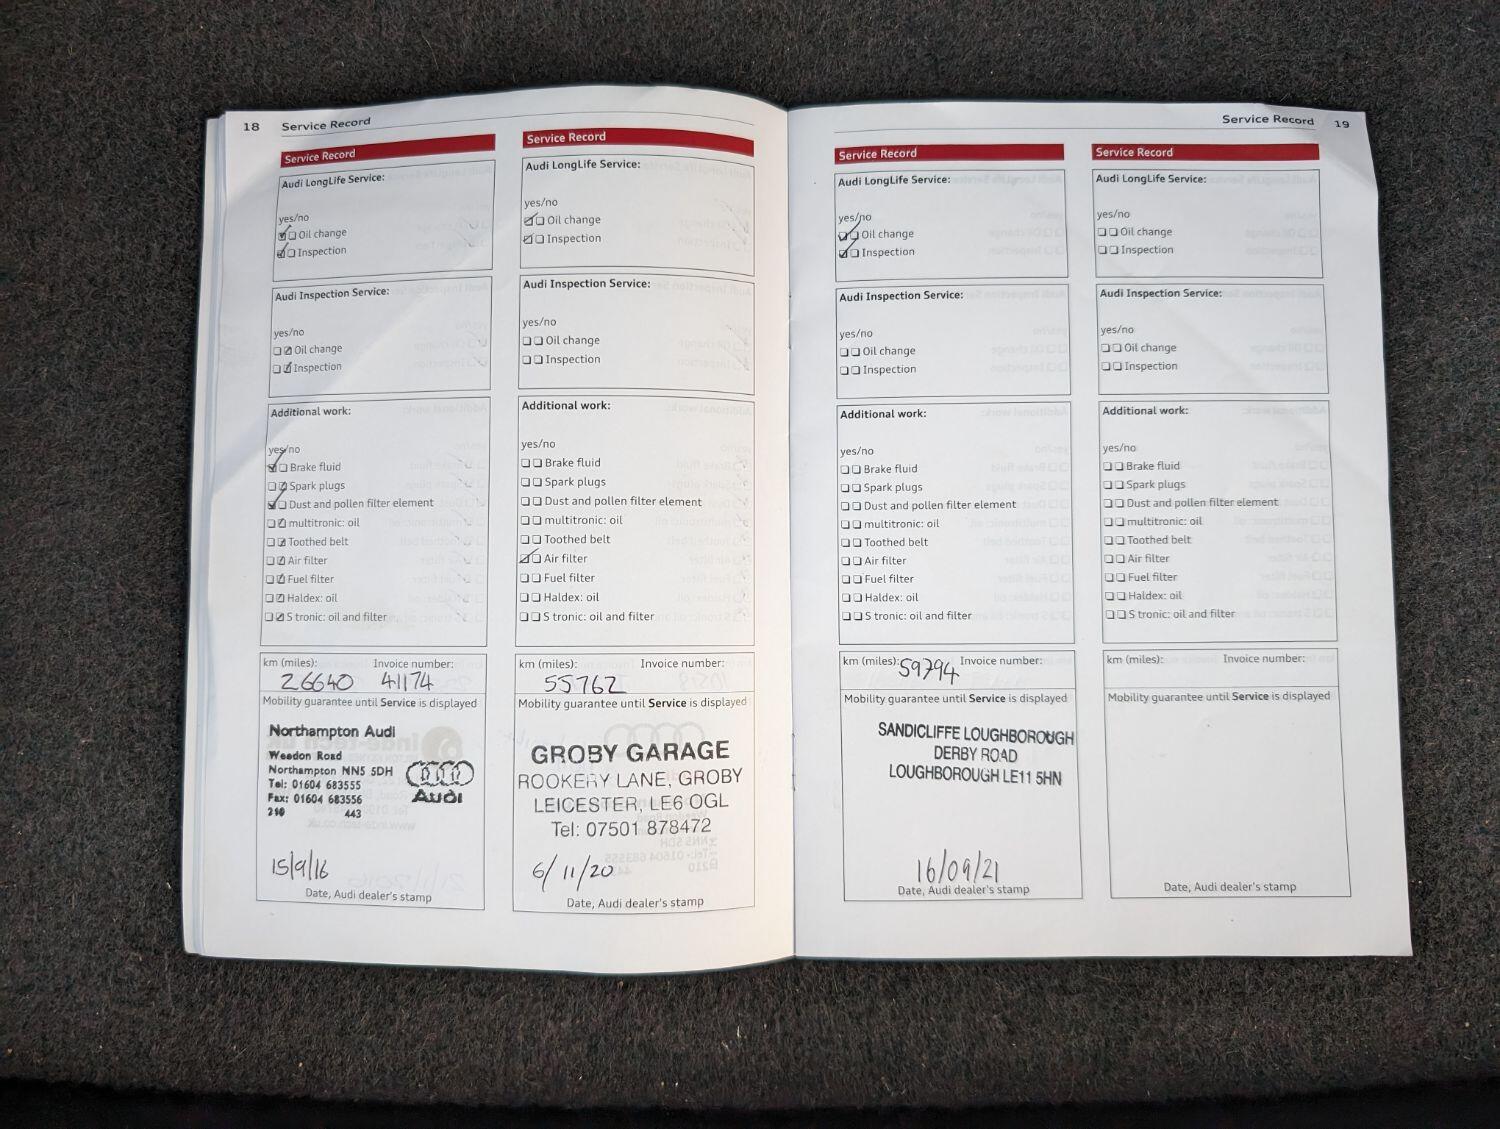 18 Service Record
Service Record
Audi LongLife Service:
yes/no
Oil change
Inspection
Audi Inspection Service:
yes/no
Oil change
Inspection
Additional work:
yes/no
Brake fluid
Spark plugs
Dust and pollen filter element
multitronic: oil
Toothed belt
Air filter
Fuel filter
Haldex: oil
S tronic: oil and filter
km (miles): Invoice number:
26640 41174
Mobility guarantee until Service is displayed
Northampton Audi
Weedon Road
Northampton NN5 5DH
Tel: 01604 683555
Fax: 01604 683556
210 443
Audi
15/9/16
Date, Audi dealer's stamp
Service Record
Audi LongLife Service:
yes/no
Oil change
Inspection
Audi Inspection Service:
yes/no
Oil change
Inspection
Additional work:
yes/no
Brake fluid
Spark plugs
Dust and pollen filter element
multitronic: oil
Toothed belt
Air filter
Fuel filter
Haldex: oil
S tronic: oil and filter
km (miles): Invoice number:
55762
Mobility guarantee until Service is displayed
GROBY GARAGE
ROOKERY LANE, GROBY
LEICESTER, LE6 0GL
Tel: 07501 878472
6/11/20
Date, Audi dealer's stamp
Service Record 19
Service Record
Audi LongLife Service:
yes/no
Oil change
Inspection
Audi Inspection Service:
yes/no
Oil change
Inspection
Additional work:
yes/no
Brake fluid
Spark plugs
Dust and pollen filter element
multitronic: oil
Toothed belt
Air filter
Fuel filter
Haldex: oil
S tronic: oil and filter
km (miles): 59794 Invoice number:
Mobility guarantee until Service is displayed
SANDICLIFFE LOUGHBOROUGH
DERBY ROAD
LOUGHBOROUGH LE11 5HN
16/09/21
Date, Audi dealer's stamp
Service Record
Audi LongLife Service:
yes/no
Oil change
Inspection
Audi Inspection Service:
yes/no
Oil change
Inspection
Additional work:
yes/no
Brake fluid
Spark plugs
Dust and pollen filter element
multitronic: oil
Toothed belt
Air filter
Fuel filter
Haldex: oil
S tronic: oil and filter
km (miles): Invoice number:
Mobility guarantee until Service is displayed
Date, Audi dealer's stamp